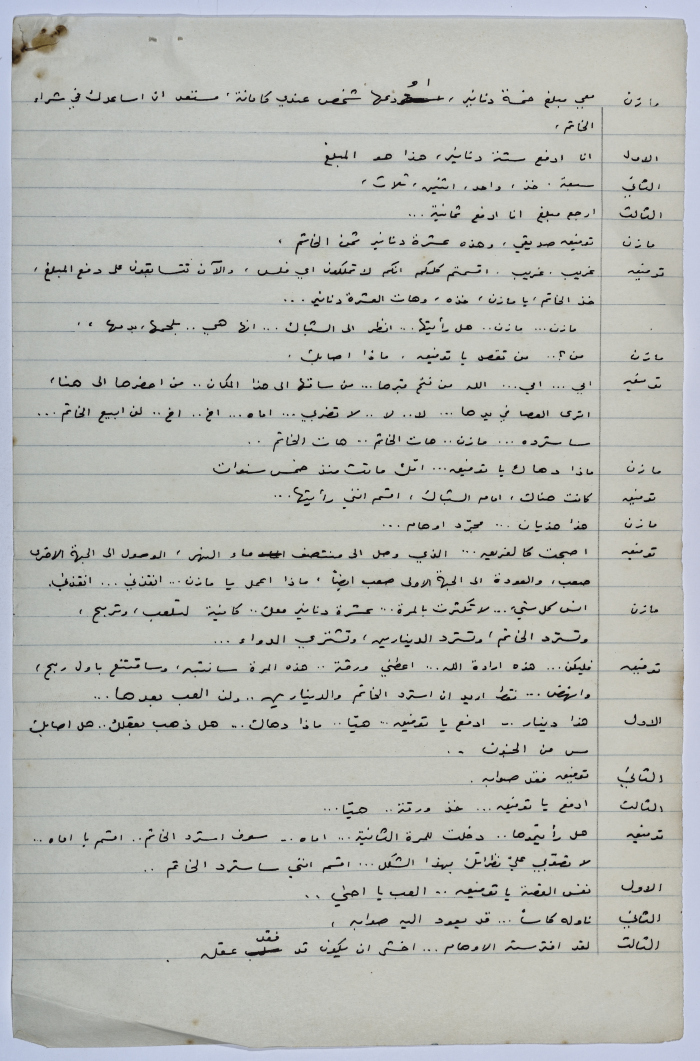 مازن معي مبلغ خمسة دنانير، اودعها شخص عندي كامانة، مستعد ان اساعدك في شراء
الخاتم،
الاول انا ادفع ستة دنانير، هذا هو المبلغ
الثاني سبعة. خذ، واحد، اثنين، ثلاث،
الثالث ارجع مبلغ انا ادفع ثمانية...
مازن توفيق صديقي، وهذه عشرة دنانير ثمن الخاتم،
توفيق غريب. غريب. اقسمتم كلكم انكم لا تملكون اي فلس، والآن تتسابقون على دفع المبلغ،
خذ الخاتم، يا مازن، خذه، وهات العشرة دنانير...
مازن... مازن.. هل رأيتها.. انظر الى الشباك... انها هي.. بلحمها، بدمها،،
مازن من؟.. من تقصد يا توفيق. ماذا اصابك،
توفيق امي... امي... الله من فتح قبرها... من ساقها الى هذا المكان.. من احضرها الى هنا،
اترى العصا في يدها... لا.. لا.. لا تضربي... اماه... اخ.. اخ.. لن ابيع الخاتم...
ساسترده... مازن.. هات الخاتم.. هات الخاتم..
مازن ماذا دهاك يا توفيق... امك ماتت منذ خمس سنوات
توفيق كانت هناك، امام الشباك، اقسم انني رأيتها...
مازن هذا هذيان... مجرّد اوهام...
توفيق اصبحت كالغريق... الذي وصل الى منتصف ماء النهر، الوصول الى الجهة الاخرى
صعب، والعودة الى الجهة الاولى صعب ايضاً، ماذا اعمل يا مازن... انقذني... انقذني.
مازن انس كل شيء... لا تكترث بالمرة... عشرة دنانير معك.. كافية لتلعب، وتربح،
وتسترد الخاتم، وتسترد الدينارين، وتشتري الدواء...
توفيق فليكن... هذه ارادة الله... اعطني ورقة.. هذه المرة سانتبه، وساقتنع باول ربح،
وانهض... فقط اريد ان استرد الخاتم والدينارين.. ولن العب بعدها...
الاول هذا دينار.. ادفع يا توفيق.. هيّا.. ماذا دهاك.. هل ذهب بعقلك.. هل اصابك
مس من الجنون..
الثاني توفيق فقد صوابه.
الثالث ادفع يا توفيق... خذ ورقة.. هيّا...
توفيق هل رأيتموها.. دخلت للمرة الثانية... اماه.. سوف استرد الخاتم.. اقسم يا اماه..
لا تصوّبي عليّ نظراتك بهذا الشكل... اقسم انني ساسترد الخاتم..
الاول نفس القصة يا توفيق.. العب يا اخي..
الثاني ناوله كاساً... قد يعود اليه صوابه،
الثالث لقد افترسته الاوهام... اخشى ان يكون قد فقد عقله.